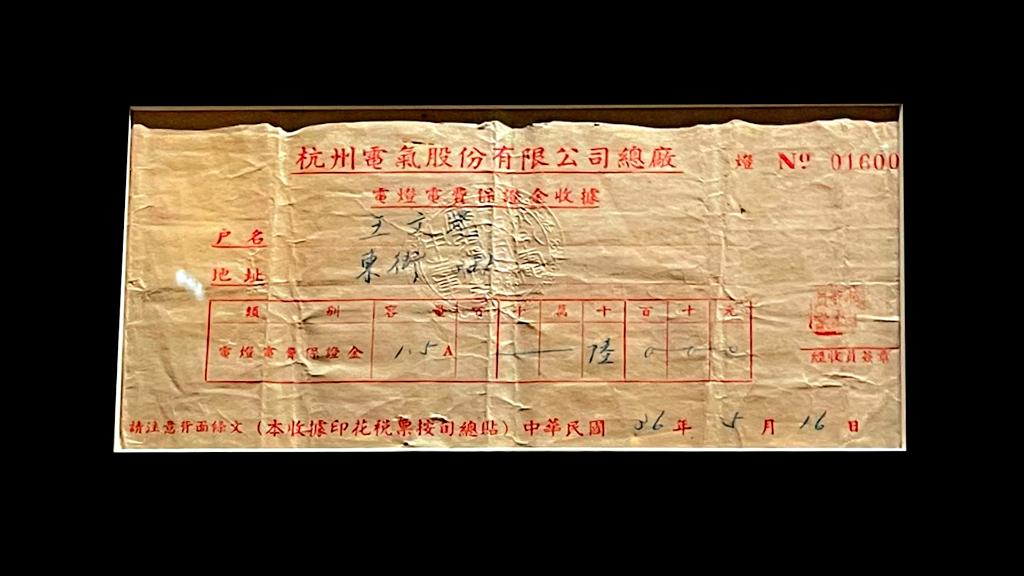 杭州電氣股份有限公司總廠 燈 Nº 01600
電燈電費保證金收據
戶名 王文
地址 東街
類別 容量 百 十 萬 千 百 十 元
電燈電費保證金 1.5A 陸 0 0 0
經收員簽章
請注意背面條文（本收據印花稅票按司總貼）中華民國 36年 5月 16日